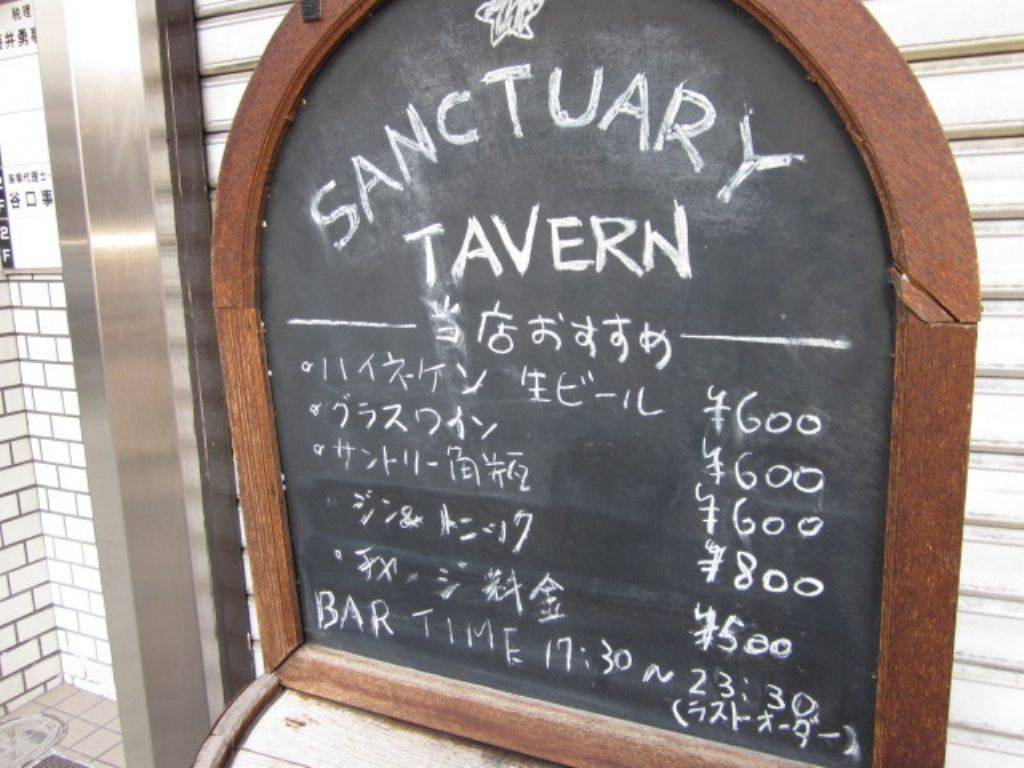 SANCTUARY
TAVERN
当店おすすめ
ハイネケン 生ビール ¥600
グラスワイン ¥600
サントリー角瓶 ¥600
ジン& トニック ¥800
チャージ料金 ¥500
BAR TIME 17:30〜23:30
(ラストオーダー)
税理
井勇事
谷口事
2F